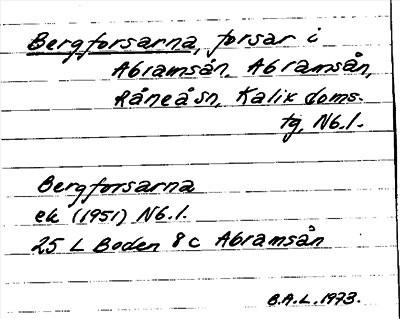 Bergforsarna, forsar i
Abramsån, Abramsån,
Råneåsn, Kalix doms.
tg, Nb.l.
Bergforsarna
ek (1951) Nb.l.
25 L Boden 8c Abramsån
B.A.L. 1973.